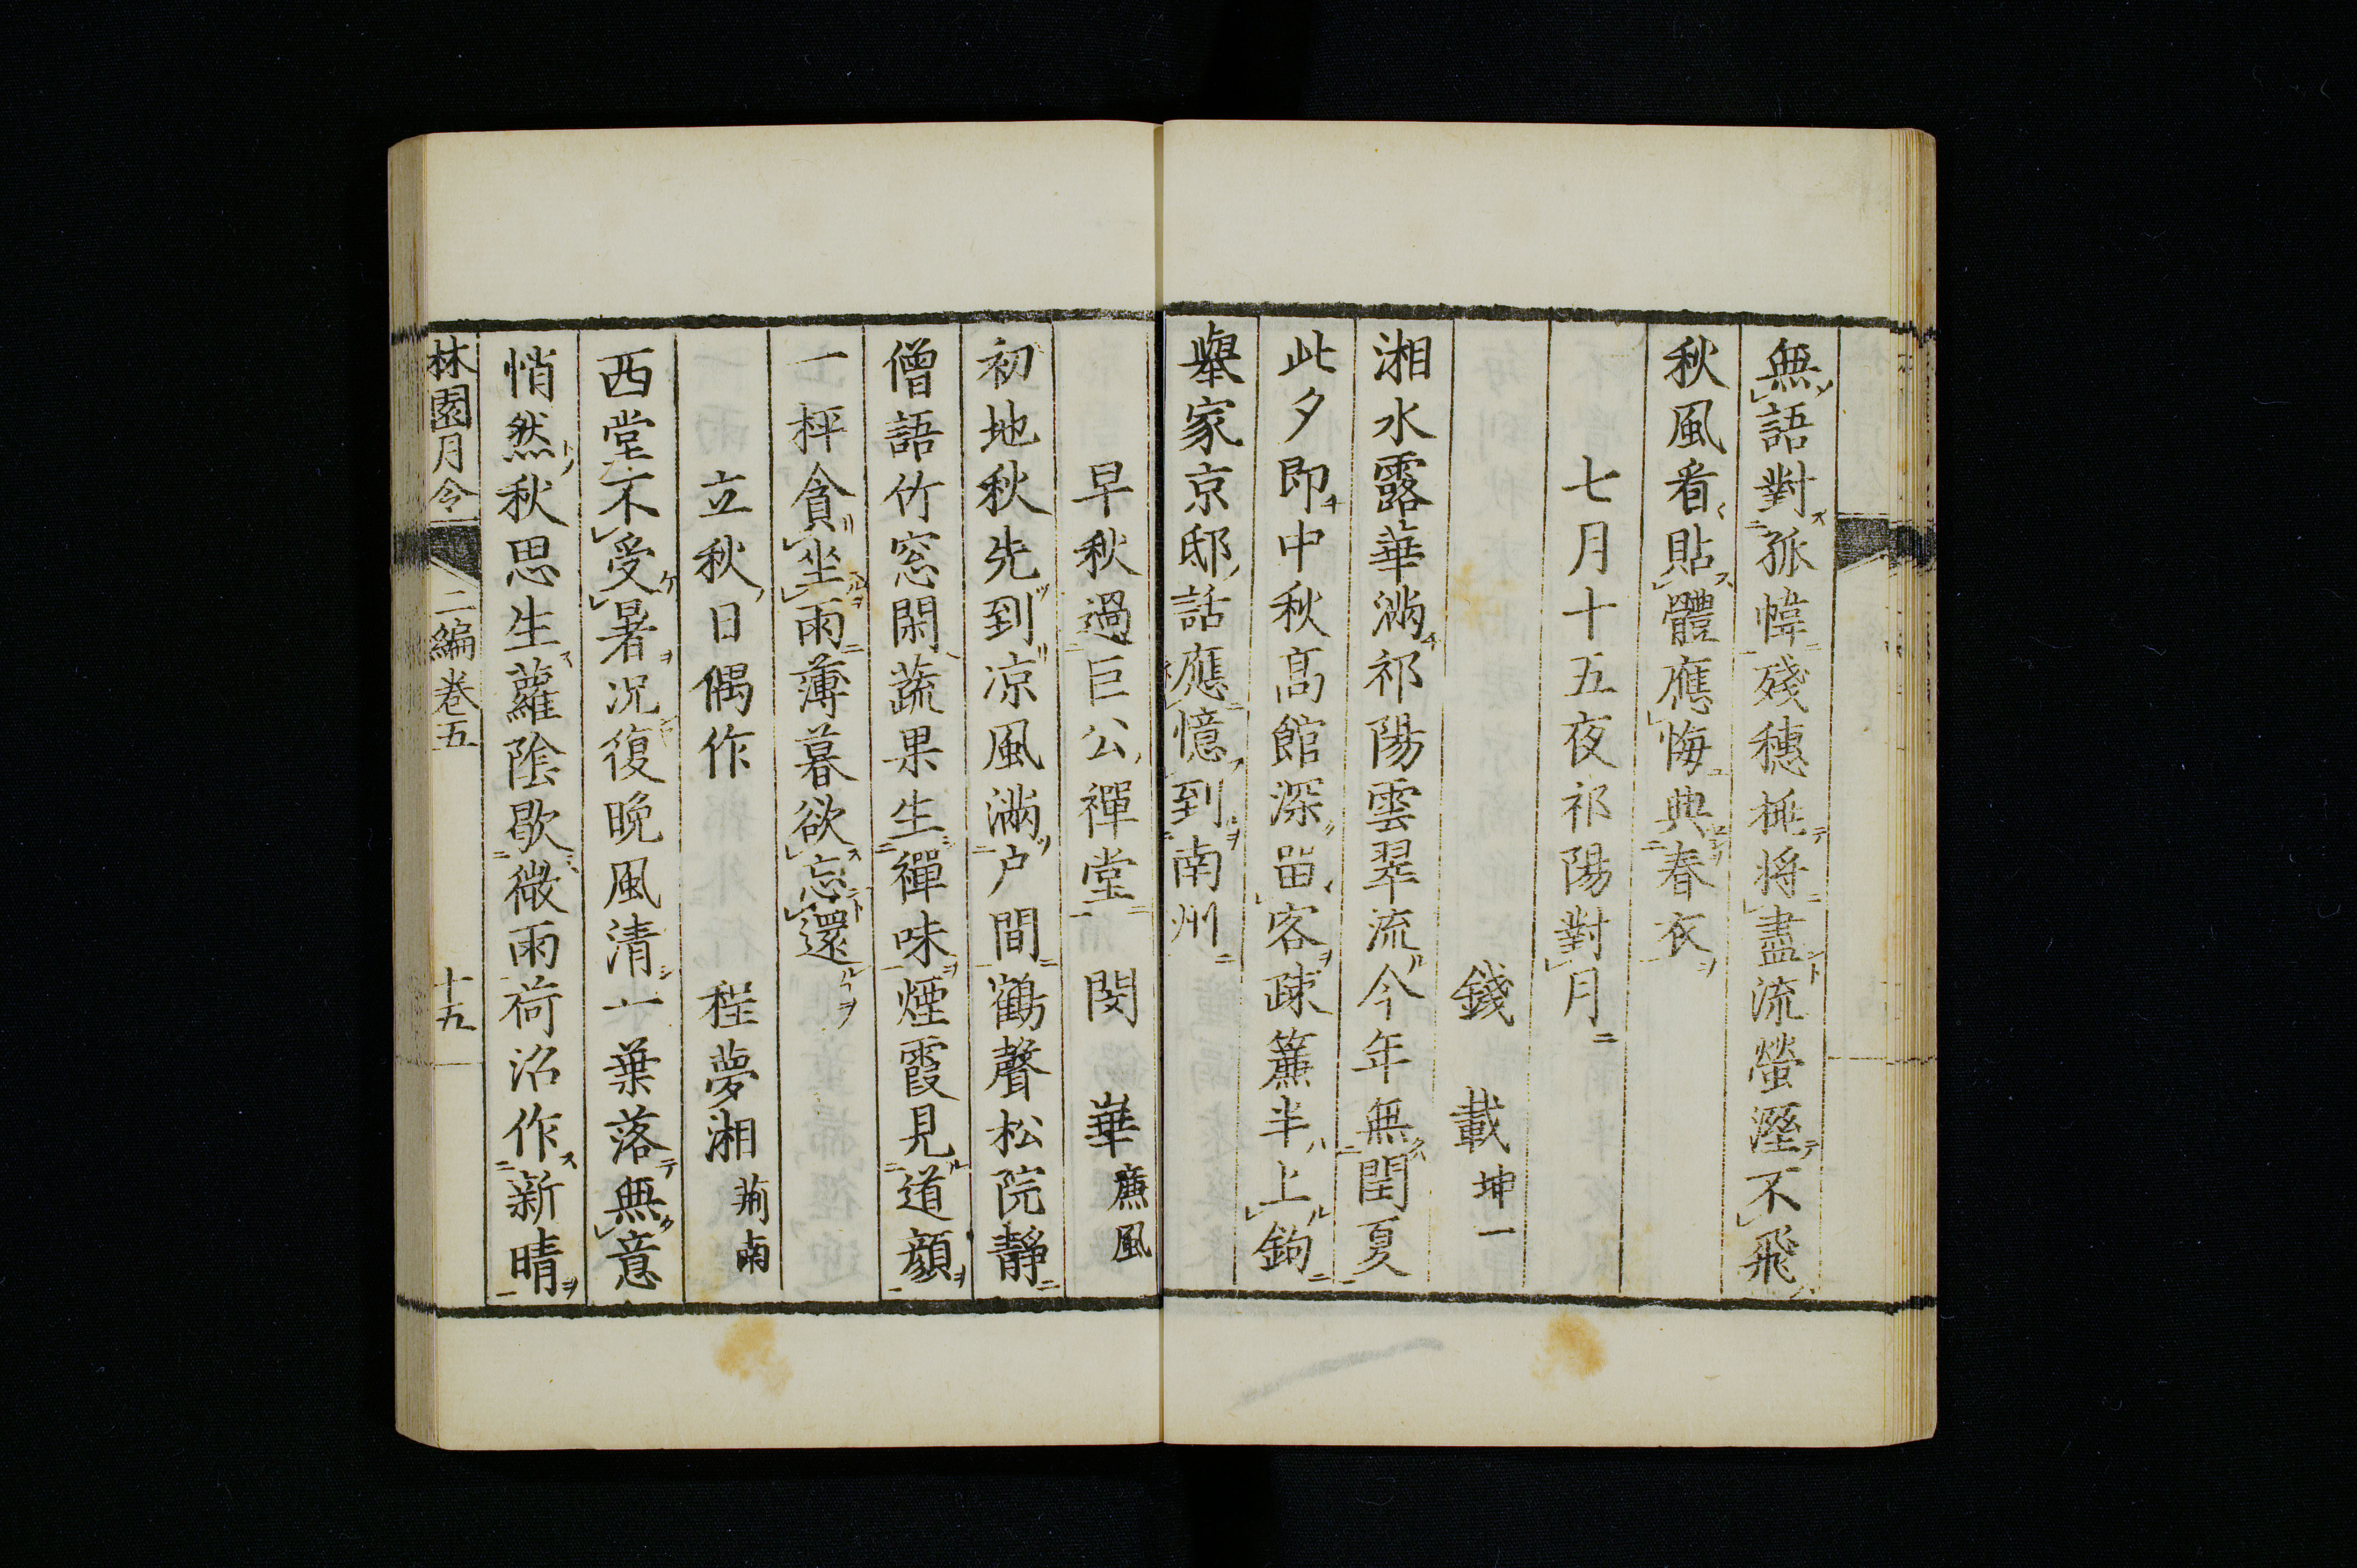 無語對孤幃殘穗揷將盡流螢溼不飛
秋風看貼體應悔典春衣
七月十五夜祁陽對月
錢載坤一
湘水露華滿祁陽雲翠流今年無閏夏
此夕即中秋高館深畱客疎簾半上鉤
舉家京邸話應憶到南州
早秋過巨公禪堂 閔華廉風
初地秋先到凉風滿户間鶴聲松院靜
僧語竹窓閑蔬果生禪味煙霞見道顔
一枰貪坐雨薄暮欲忘還
立秋日偶作 程夢湘荊南
西堂不受暑况復晩風清一葉落無意
悄然秋思生蘿陰歇微雨荷沼作新晴
林園月令 二編卷五 十五